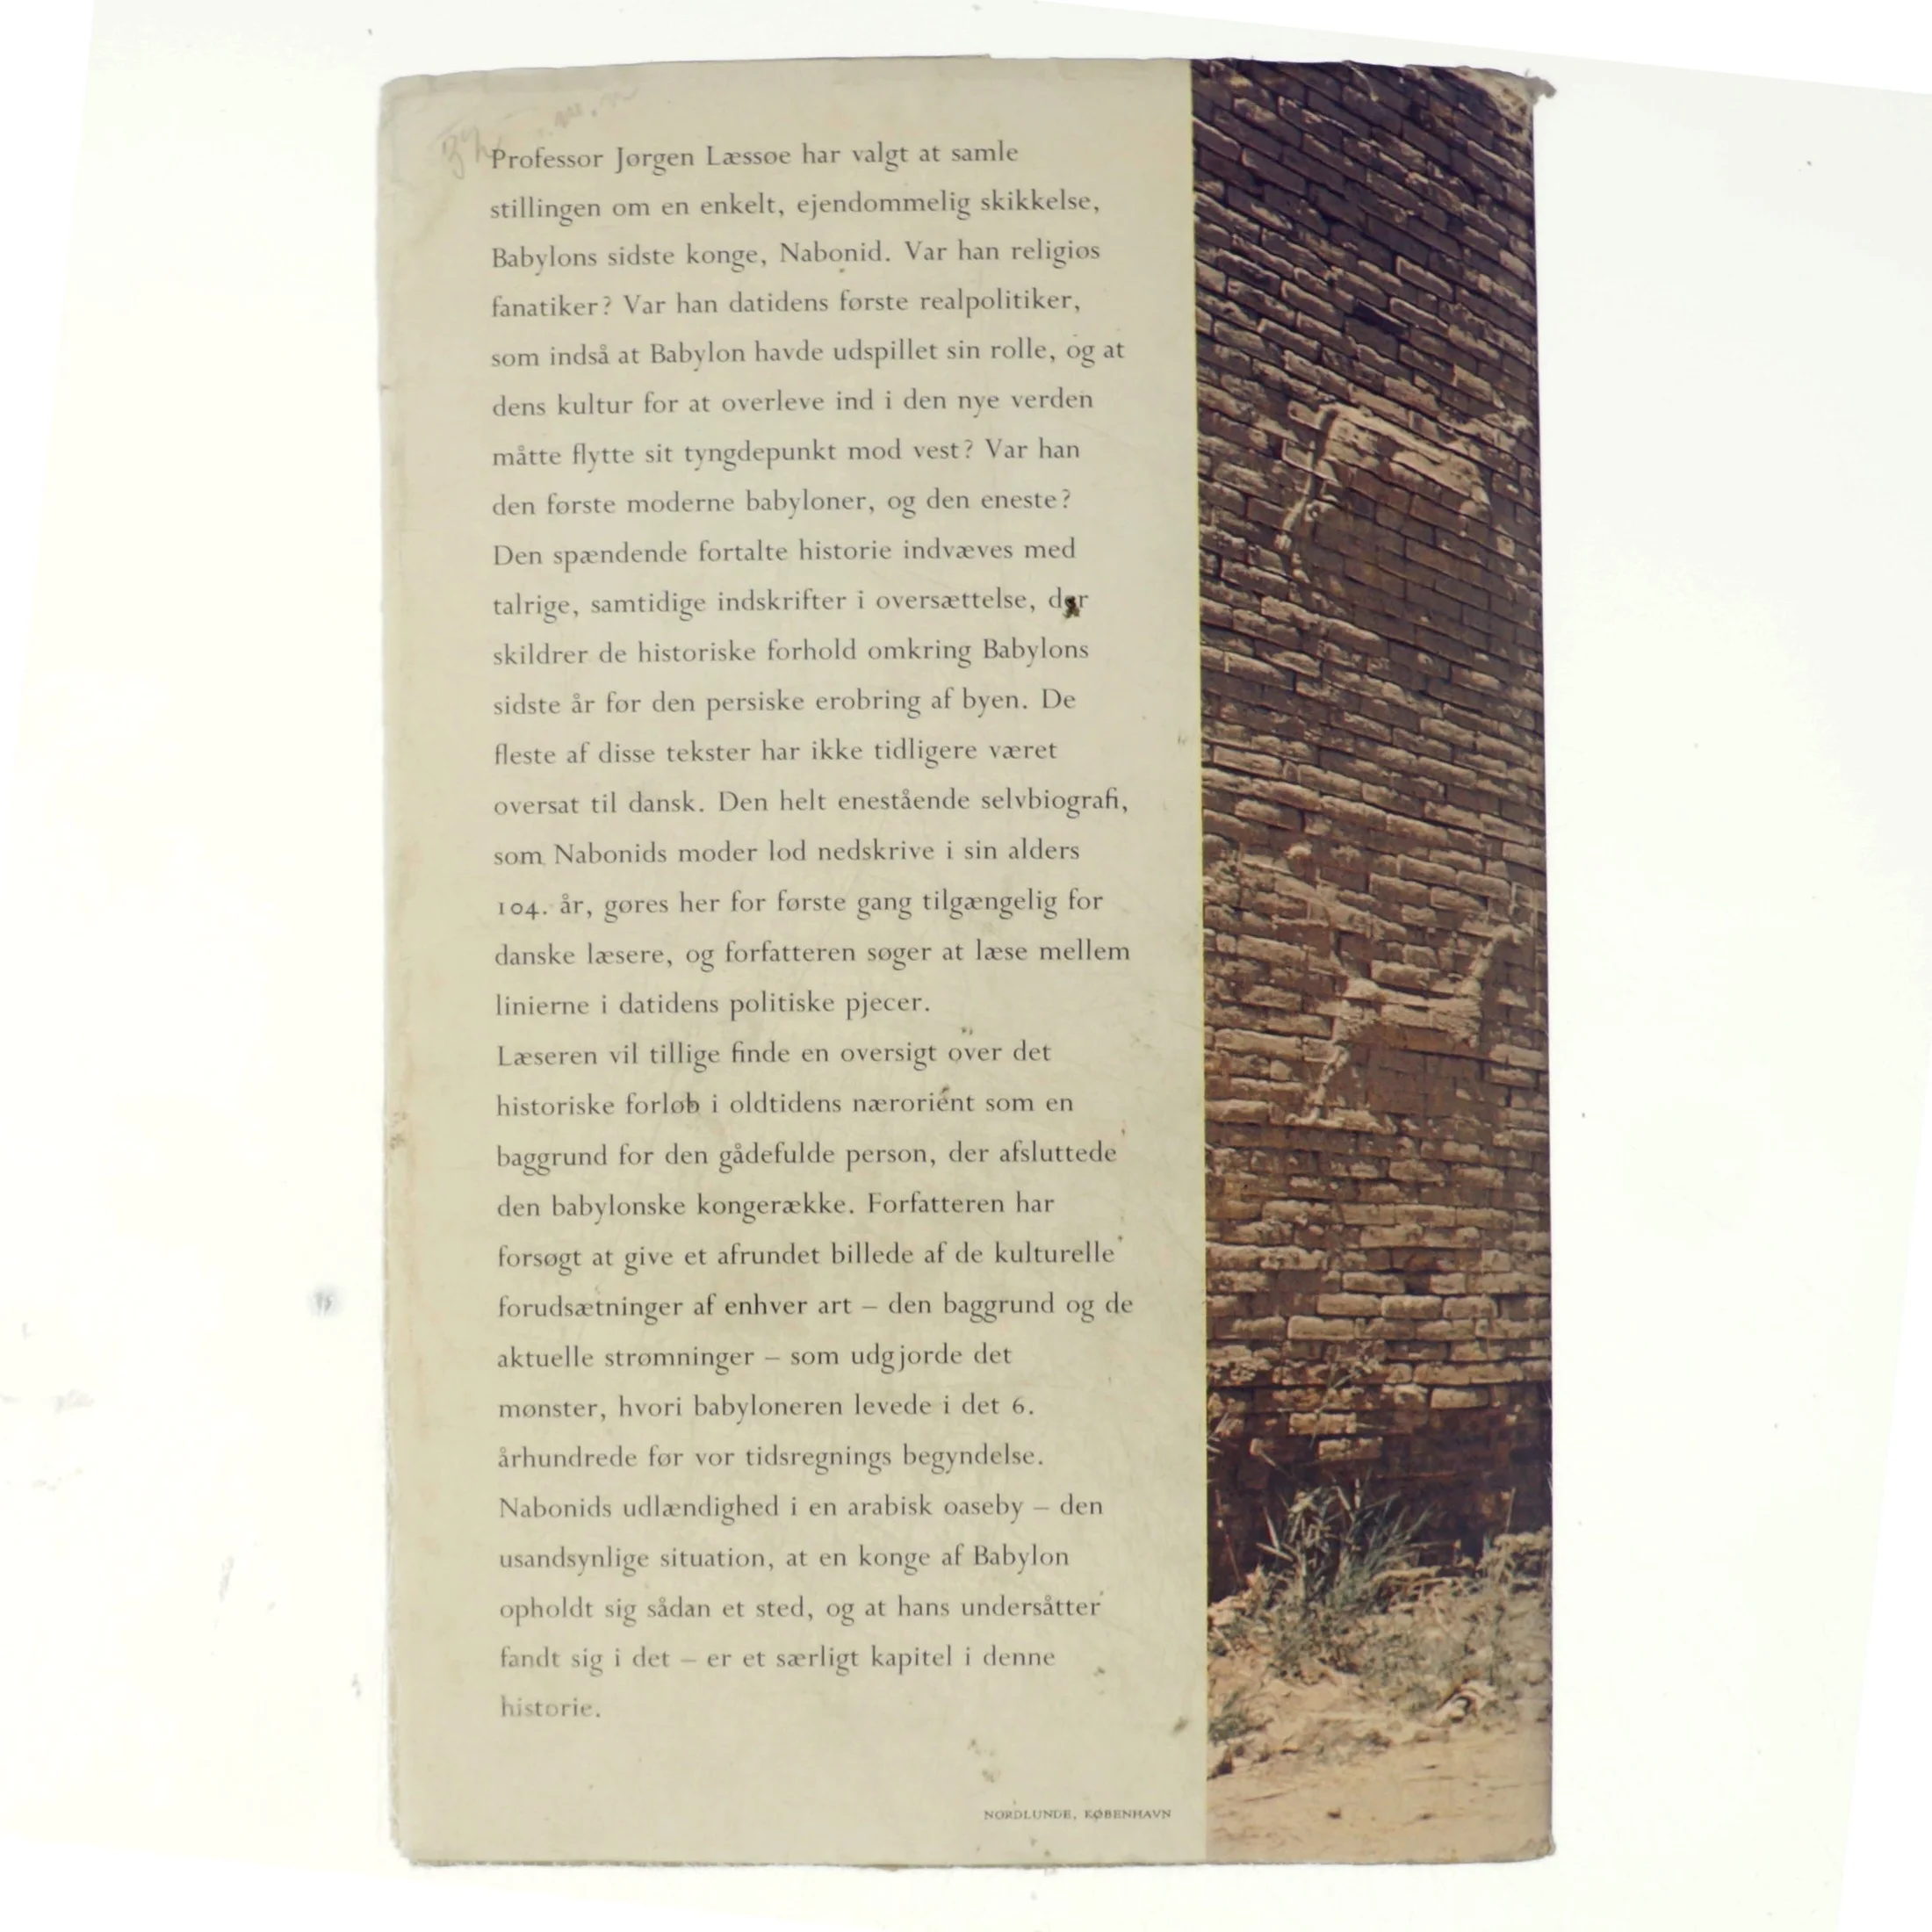 Professor Jørgen Læssøe har valgt at samle
stillingen om en enkelt, ejendommelig skikkelse,
Babylons sidste konge, Nabonid. Var han religiøs
fanatiker? Var han datidens første realpolitiker,
som indså at Babylon havde udspillet sin rolle, og at
dens kultur for at overleve ind i den nye verden
måtte flytte sit tyngdepunkt mod vest? Var han
den første moderne babyloner, og den eneste?
Den spændende fortalte historie indvæves med
talrige, samtidige indskrifter i oversættelse, der
skildrer de historiske forhold omkring Babylons
sidste år før den persiske erobring af byen. De
fleste af disse tekster har ikke tidligere været
oversat til dansk. Den helt enestående selvbiografi,
som Nabonids moder lod nedskrive i sin alders
104. år, gøres her for første gang tilgængelig for
danske læsere, og forfatteren søger at læse mellem
linierne i datidens politiske pjecer.
Læseren vil tillige finde en oversigt over det
historiske forløb i oldtidens nærorient som en
baggrund for den gådefulde person, der afsluttede
den babylonske kongerække. Forfatteren har
forsøgt at give et afrundet billede af de kulturelle
forudsætninger af enhver art – den baggrund og de
aktuelle strømninger – som udgjorde det
mønster, hvori babyloneren levede i det 6.
århundrede før vor tidsregnings begyndelse.
Nabonids udlændighed i en arabisk oaseby – den
usandsynlige situation, at en konge af Babylon
opholdt sig sådan et sted, og at hans undersåtter
fandt sig i det – er et særligt kapitel i denne
historie.
NORDLUNDE, KØBENHAVN